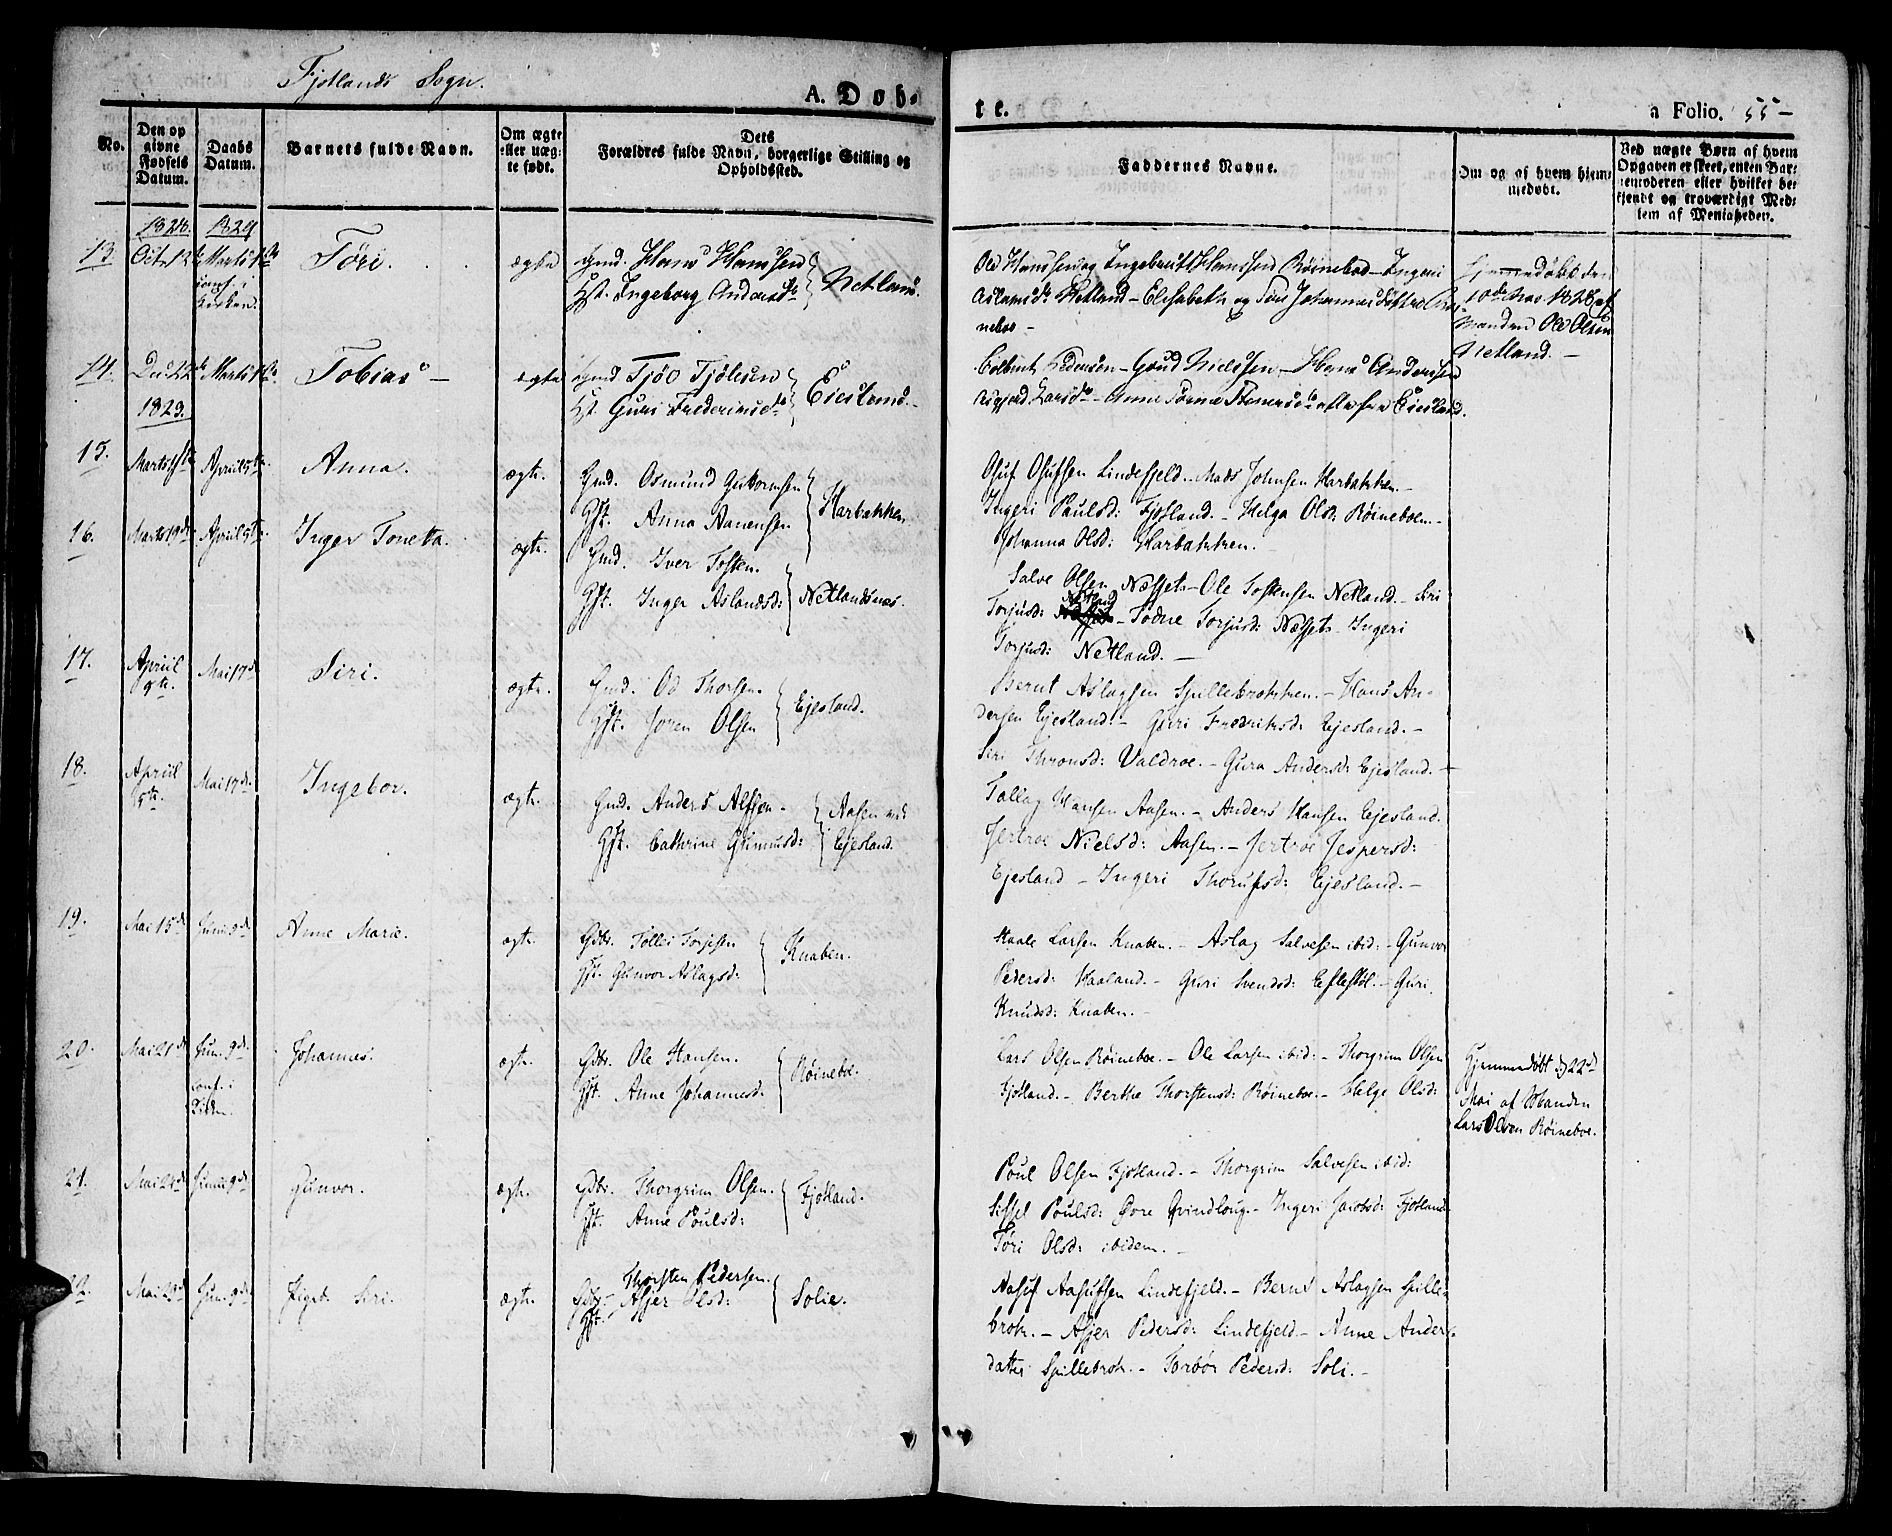 Fjotlands Sogn.
A. Døb-
te.
a Folio. 55-
No.
Den op
givne
Fødsels
Datum.
Daabs
Datum.
Barnets fulde Navn.
Om ægte
eller uæg-
te født.
Dets
Forældres fulde Navn, borgerlige Stilling og
Opholdssted.
Faddernes Navne.
Om og af hvem hjem-
medøbt.
Ved uægte Børn af hvem
Opgaven er skeet, enten Bar-
nemoderen eller hvilket be-
kjendt og troværdigt Med-
lem af Menigheden.
1828. 1829
13. Octr 12te Marts Tøri. ægte Gmd. Hans Hanssen
Hst. Ingeborg Andersdr Netland.
conf. i
Kirken.
Old Hanssen og Ingebret Hanssen Røinebod - Ingeri
Aslansdr Netland - Elisabeth og Tøri Johannesdøttre Røi-
neboe -
Hjemmedøbt den
10de Nov 1828 af
Manden Old Olsen
Netland. -
14. Dec 22de Marts Tobias - ægte Gmd Tjøl Tjølsen
Hst Guri Fredericsdr Eiesland.
Pedersen - Gund Nielssen - Hans Anderssen
Larsdr - Anne alle fra Eiesland.
1829.
15. Marts Aprill 5te Anna. ægte. Gmd. Osmund Guttormsen
Gft. Anna Aanensen Harbakken
Oluf Olufsen Lindefjeld. - Mads Johnsen Harbakken. -
Ingeri Paulsd: Fjotland. - Helga Olsd: Røineboen. -
Johanna Olsd: Harbakken.
16. Marts 19de Aprill 5te Inger Toneta. ægte. Gmd. Iver Tosten.
Gft. Inger Aslandsd: Netlandsnes.
Salve Olsen Næsset. - Ole Tostensen Netland. - Siri
Torjusd: Netland - Todne Torjusd: Næsset - Ingeri
Torjusd: Netland. -
17. Aprill
9te. Mai 17de Siri. ægte. Gmd. Od Thorsen.
Gft. Joren Olsen Ejesland.
Bernt Aslagsen Spillebrokken. - Hans An-
dersen Ejesland. - Guri Fredriksd: Ejesland. -
Siri Thronsd: Valdroe. - Gura Andersd: Ejesland. -
18. Aprill
5te. Mai 17de. Ingebor. ægte. Gmd. Anders Alfsen.
Gft. Cathrine Gumunsd: Aasen ved
Ejesland.
Tallag Hansen Aasen. - Anders Hansen Ejesland.
Jertroe Nielsd: Aasen. - Jertroe Jespersd:
Ejesland - Ingeri Thorufsd: Ejesland. -
19. Mai 15de Juni 9de Anne Marie. ægte. Gdbr. Tollei Torjisen
Gft. Gunvor Aslagsd: Knaben.
Staale Larsen Knaben. - Aslag Salvesen ibid: - Gunvor
Pedersd: Haaland. - Guri Svendsd: Eftestøl. - Guri
Knudsd: Knaben. -
20. Mai 21de Jun. 9de. Johannes. ægte. Gdbr. Ole Hansen.
conf. i
Kirken.
Gft. Anne Johannesd: Røineboe.
Lars Olsen Røineboe. - Ole Larsen ibid: - Thorgrim Olsen
Fjotland. - Berthe Thorstensd: Røineboe. - Helge Olsd:
Hjemmedøbt d 22de
Mai af Manden
Lars Olsen Røineboe.
21. Mai Juni 9de Gunvor. ægte. Gdbr. Thorgrim Olsen.
Gft. Anne Poulsd: Fjotland.
Poul Olsen Fjotland. - Thorgrim Salvesen ibid:
Sissel Poulsd: Øvre Qvindloug. - Ingeri Jacobsd: Fjotland
Tøri Olsd: ibidem. -
22. Mai 23de Jun. 9de Siri. ægte. Gdbr. Thorsten Pedersen.
Gft. Asjer Olsd: Solie.
Aasuf Aasufsen Lindefjeld. - Bernt Aslagsen Spille-
brok. - Asjer Pedersd: Lindefjeld - Anne Anders-
datter Spillebrok. - Torbør Pedersd: Soli. -